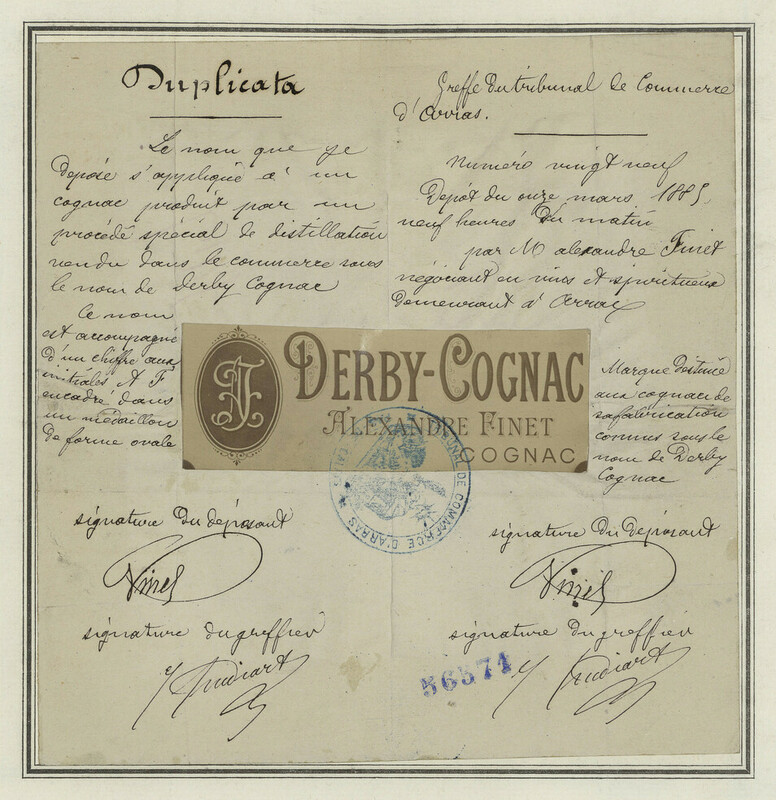 Duplicata
Le nom que je
depose s'applique à un
cognac produit par un
procédé spécial de distillation
vendu dans le commerce sous
le nom de Derby Cognac
Ce nom
est accompagné
d'un chiffre aux
initiales A F
encadré dans
un médaillon
de forme ovale
Greffe du tribunal de Commerce
d'Arras.
Numéro vingt neuf
Depôt du onze mars 1885.
neuf heures du matin
par M alexandre Finet
négociant en vins et spiritueux
demeurant à Arras
Marque destinée
aux cognac de
sa fabrication
connus sous le
nom de Derby
Cognac
AF
DERBY-COGNAC
ALEXANDRE FINET
COGNAC
TRIBUNAL DE COMMERCE D'ARRAS
signature du déposant
Finet
signature du greffier
signature du déposant
Finet
signature du greffier
56571